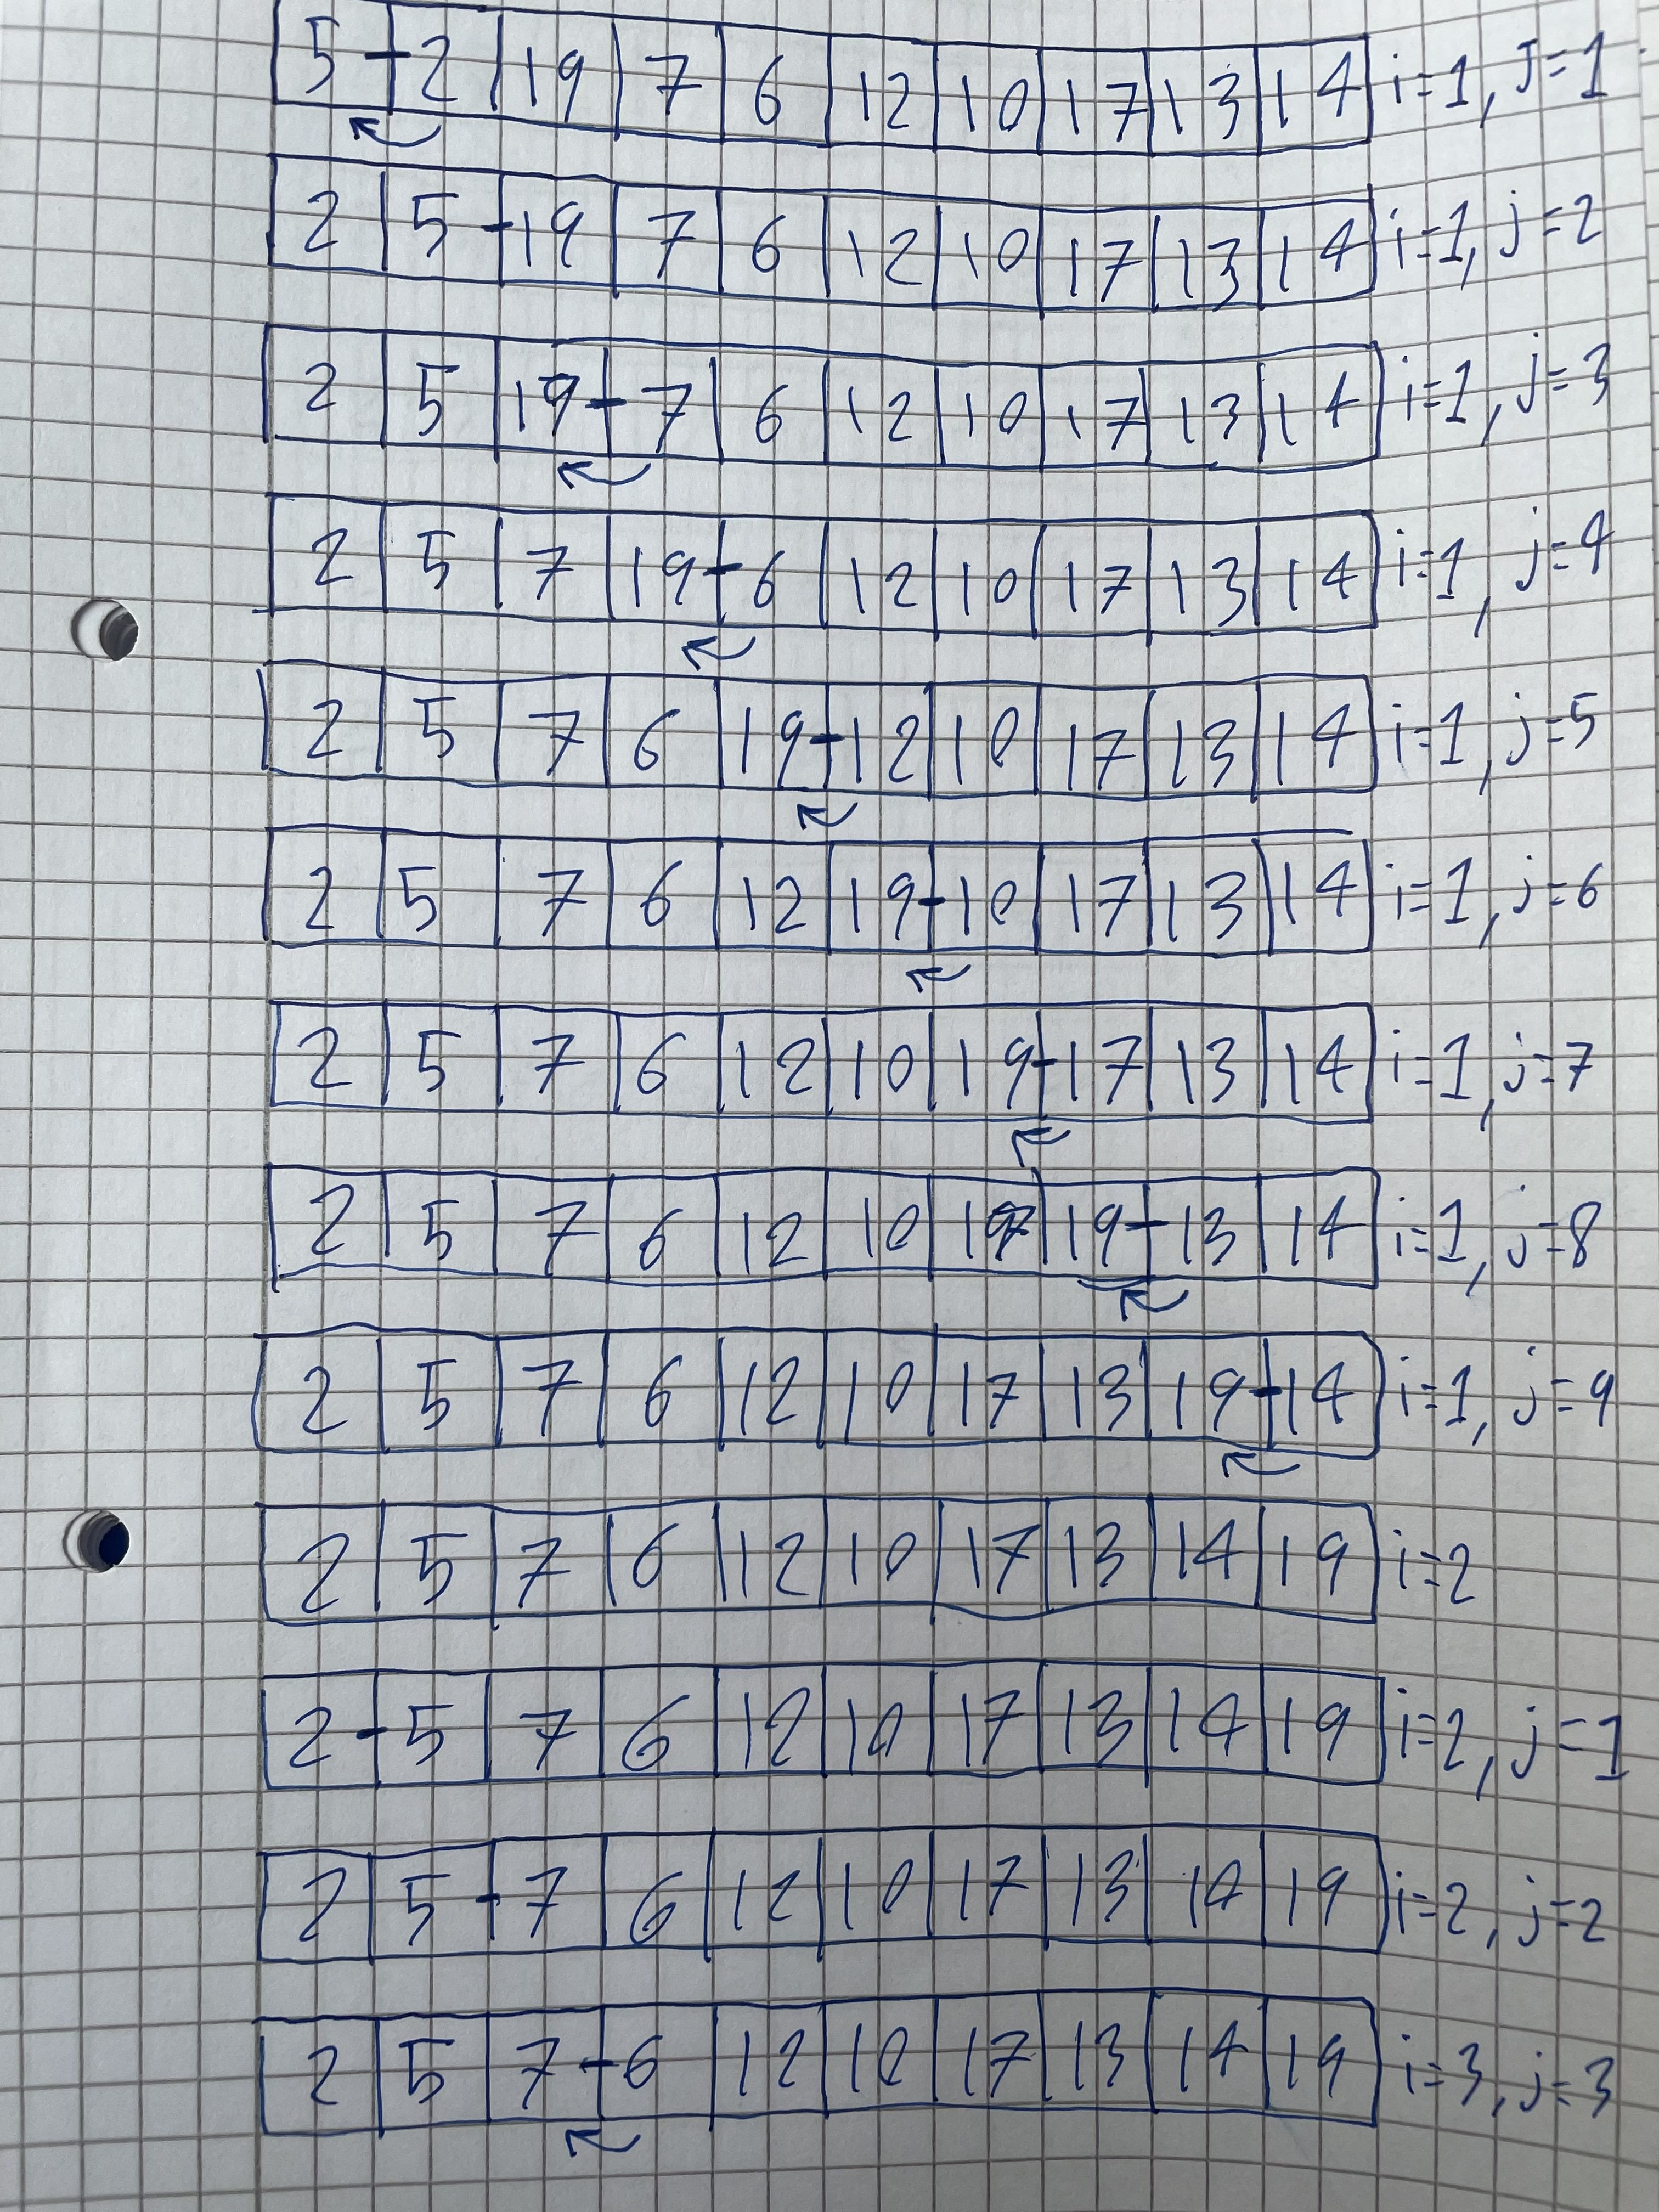 5 - 2 | 19 | 7 | 6 | 12 | 10 | 17 | 13 | 14 i=1, J=1
2 | 5 - 19 | 7 | 6 | 12 | 10 | 17 | 13 | 14 i=1, j=2
2 | 5 | 19 - 7 | 6 | 12 | 10 | 17 | 13 | 14 i=1, j=3
2 | 5 | 7 | 19 - 6 | 12 | 10 | 17 | 13 | 14 i=1, j=4
2 | 5 | 7 | 6 | 19 - 12 | 10 | 17 | 13 | 14 i=1, j=5
2 | 5 | 7 | 6 | 12 | 19 - 10 | 17 | 13 | 14 i=1, j=6
2 | 5 | 7 | 6 | 12 | 10 | 19 - 17 | 13 | 14 i=1, j=7
2 | 5 | 7 | 6 | 12 | 10 | 17 | 19 - 13 | 14 i=1, j=8
2 | 5 | 7 | 6 | 12 | 10 | 17 | 13 | 19 - 14 i=1, j=9
2 | 5 | 7 | 6 | 12 | 10 | 17 | 13 | 14 | 19 i=2
2 - 5 | 7 | 6 | 12 | 10 | 17 | 13 | 14 | 19 i=2, j=1
2 | 5 - 7 | 6 | 12 | 10 | 17 | 13 | 14 | 19 i=2, j=2
2 | 5 | 7 - 6 | 12 | 10 | 17 | 13 | 14 | 19 i=3, j=3